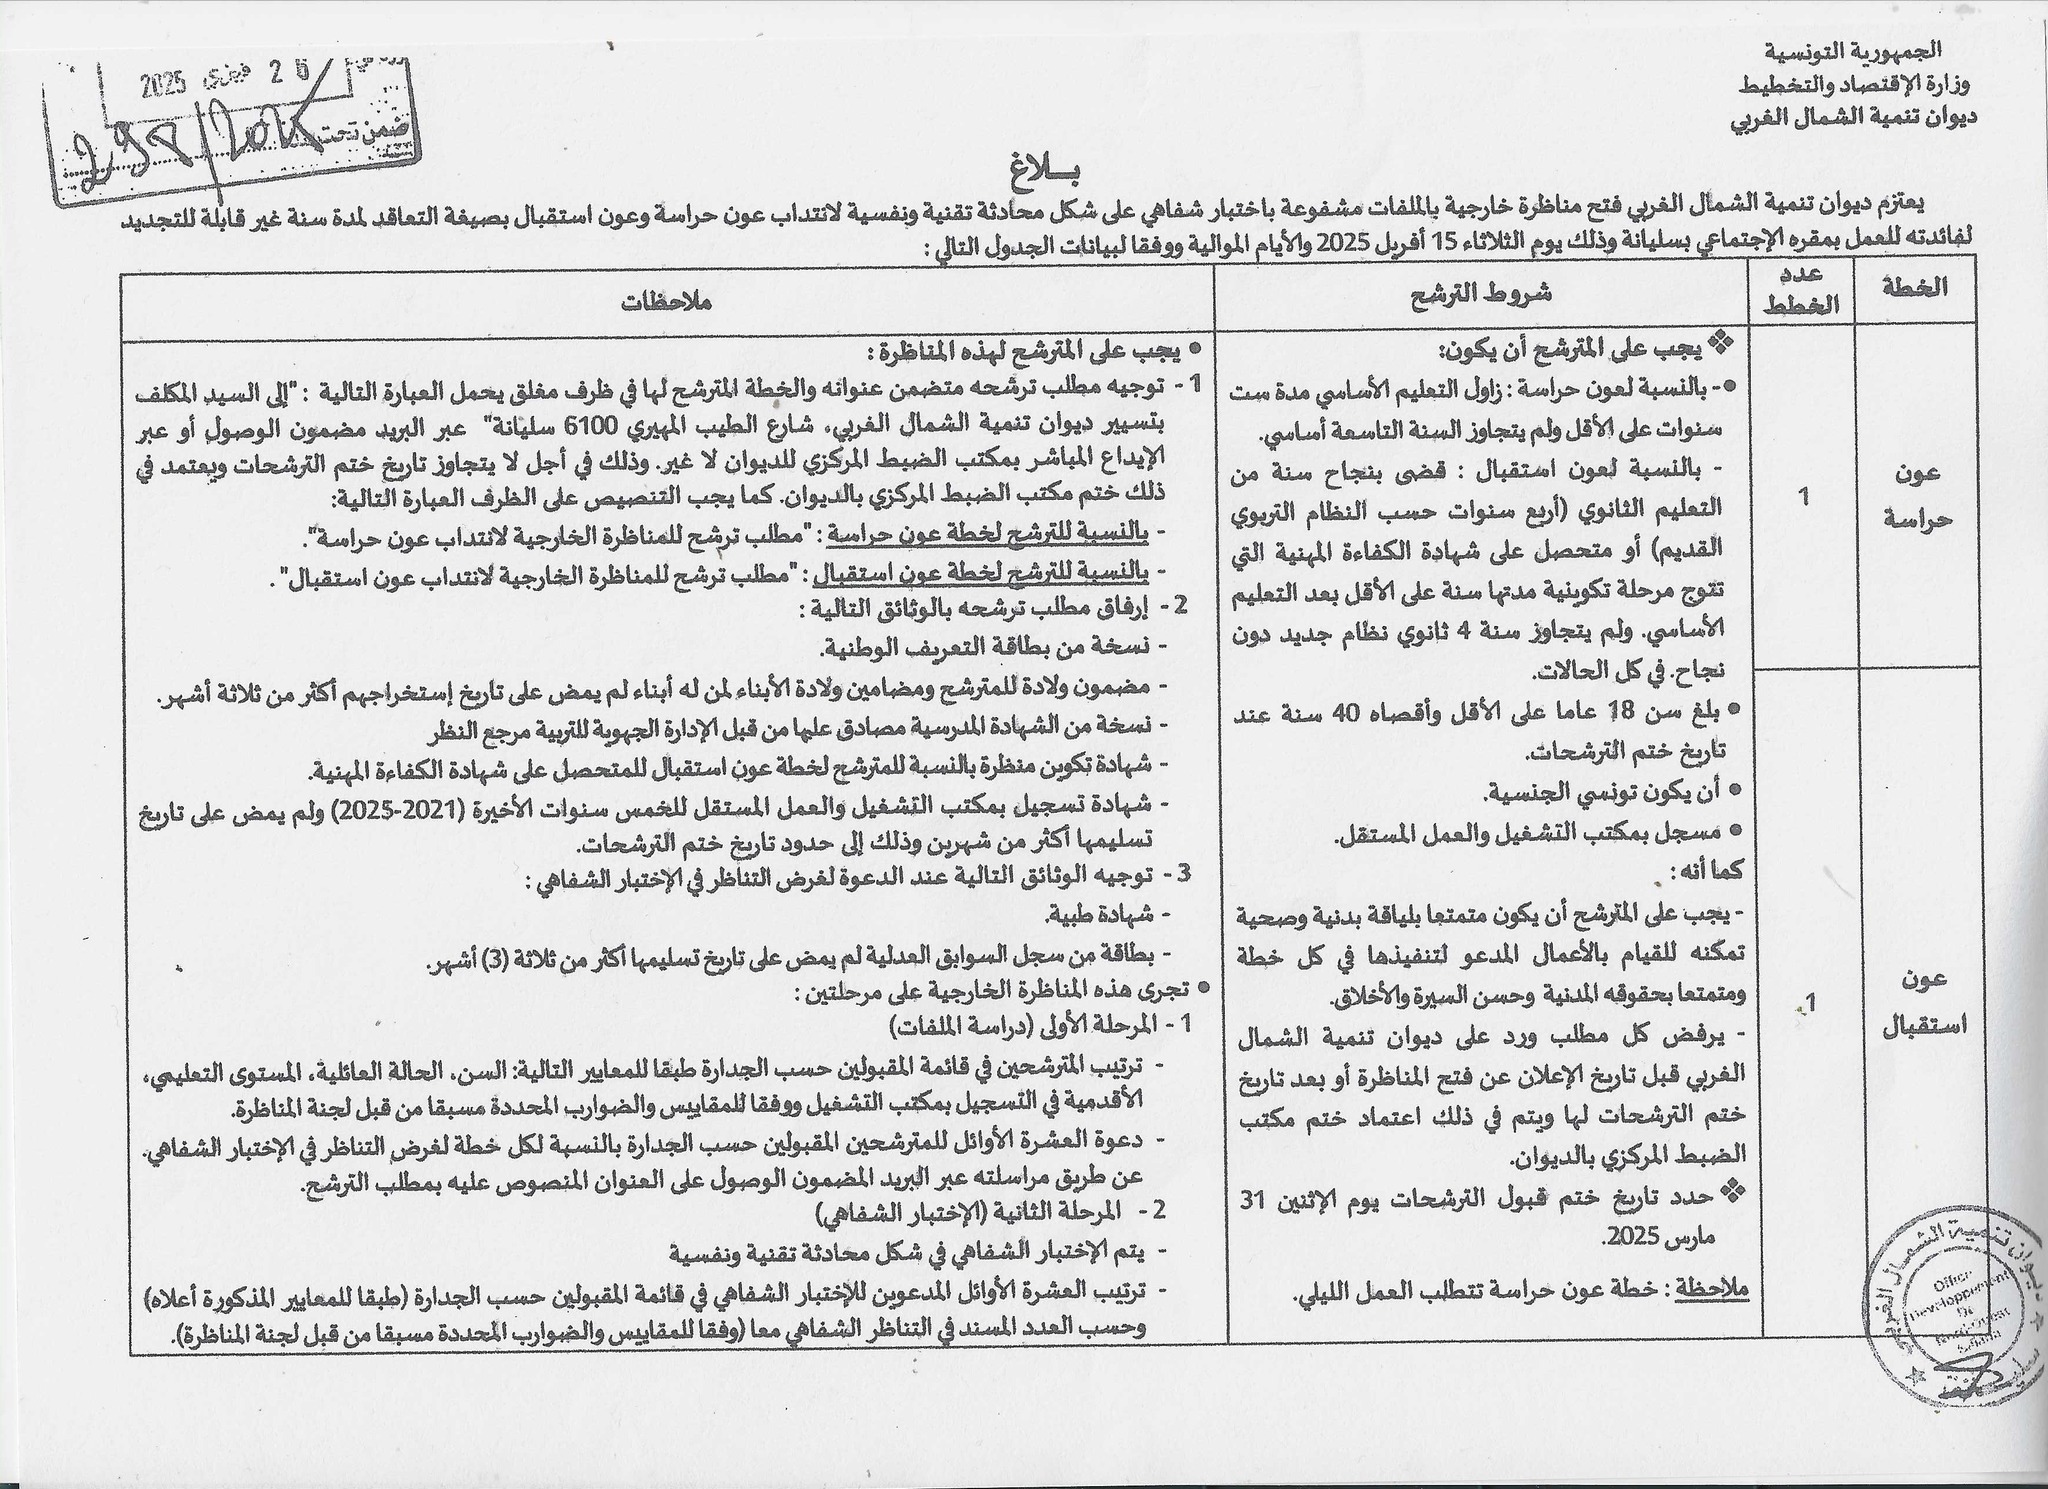 الجمهورية التونسية
وزارة الإقتصاد والتخطيط
ديوان تنمية الشمال الغربي
2025
ضمن تحت
بـــلاغ
يعتزم ديوان تنمية الشمال الغربي فتح مناظرة خارجية بالملفات مشفوعة باختبار شفاهي على شكل محادثة تقنية ونفسية لانتداب عون حراسة وعون استقبال بصيغة التعاقد لمدة سنة غير قابلة للتجديد
لفائدته للعمل بمقره الإجتماعي بسليانة وذلك يوم الثلاثاء 15 أفريل 2025 والأيام الموالية ووفقا لبيانات الجدول التالي :
الخطة
عدد
الخطط
شروط الترشح
ملاحظات
عون
حراسة
1
عون
استقبال
1
❖ يجب على المترشح أن يكون:
●- بالنسبة لعون حراسة : زاول التعليم الأساسي مدة ست
سنوات على الأقل ولم يتجاوز السنة التاسعة أساسي.
- بالنسبة لعون استقبال : قضى بنجاح سنة من
التعليم الثانوي (أربع سنوات حسب النظام التربوي
القديم) أو متحصل على شهادة الكفاءة المهنية التي
تتوج مرحلة تكوينية مدتها سنة على الأقل بعد التعليم
الأساسي. ولم يتجاوز سنة 4 ثانوي نظام جديد دون
نجاح. في كل الحالات.
● بلغ سن 18 عاما على الأقل وأقصاه 40 سنة عند
تاريخ ختم الترشحات.
● أن يكون تونسي الجنسية.
● مسجل بمكتب التشغيل والعمل المستقل.
كما أنه :
- يجب على المترشح أن يكون متمتعا بلياقة بدنية وصحية
تمكنه للقيام بالأعمال المدعو لتنفيذها في كل خطة
ومتمتعا بحقوقه المدنية وحسن السيرة والأخلاق.
- يرفض كل مطلب ورد على ديوان تنمية الشمال
الغربي قبل تاريخ الإعلان عن فتح المناظرة أو بعد تاريخ
ختم الترشحات لها ويتم في ذلك اعتماد ختم مكتب
الضبط المركزي بالديوان.
❖ حدد تاريخ ختم قبول الترشحات يوم الإثنين 31
مارس 2025.
ملاحظة : خطة عون حراسة تتطلب العمل الليلي.
● يجب على المترشح لهذه المناظرة :
1- توجيه مطلب ترشحه متضمن عنوانه والخطة المترشح لها في ظرف مغلق يحمل العبارة التالية : "إلى السيد المكلف
بتسيير ديوان تنمية الشمال الغربي، شارع الطيب المهيري 6100 سليانة" عبر البريد مضمون الوصول أو عبر
الإيداع المباشر بمكتب الضبط المركزي للديوان لا غير. وذلك في أجل لا يتجاوز تاريخ ختم الترشحات ويعتمد في
ذلك ختم مكتب الضبط المركزي بالديوان. كما يجب التنصيص على الظرف العبارة التالية:
- بالنسبة للترشح لخطة عون حراسة : "مطلب ترشح للمناظرة الخارجية لانتداب عون حراسة".
- بالنسبة للترشح لخطة عون استقبال : "مطلب ترشح للمناظرة الخارجية لانتداب عون استقبال" .
2- إرفاق مطلب ترشحه بالوثائق التالية :
- نسخة من بطاقة التعريف الوطنية.
- مضمون ولادة للمترشح ومضامين ولادة الأبناء لمن له أبناء لم يمض على تاريخ إستخراجهم أكثر من ثلاثة أشهر.
- نسخة من الشهادة المدرسية مصادق عليها من قبل الإدارة الجهوية للتربية مرجع النظر
- شهادة تكوين منظرة بالنسبة للمترشح لخطة عون استقبال للمتحصل على شهادة الكفاءة المهنية.
- شهادة تسجيل بمكتب التشغيل والعمل المستقل للخمس سنوات الأخيرة (2021-2025) ولم يمض على تاريخ
تسليمها أكثر من شهرين وذلك إلى حدود تاريخ ختم الترشحات.
3- توجيه الوثائق التالية عند الدعوة لغرض التناظر في الإختبار الشفاهي :
- شهادة طبية.
- بطاقة من سجل السوابق العدلية لم يمض على تاريخ تسليمها أكثر من ثلاثة (3) أشهر.
● تجرى هذه المناظرة الخارجية على مرحلتين :
1- المرحلة الأولى (دراسة الملفات)
- ترتيب المترشحين في قائمة المقبولين حسب الجدارة طبقا للمعايير التالية: السن، الحالة العائلية، المستوى التعليمي،
الأقدمية في التسجيل بمكتب التشغيل ووفقا للمقاييس والضوارب المحددة مسبقا من قبل لجنة المناظرة.
- دعوة العشرة الأوائل للمترشحين المقبولين حسب الجدارة بالنسبة لكل خطة لغرض التناظر في الإختبار الشفاهي.
عن طريق مراسلته عبر البريد المضمون الوصول على العنوان المنصوص عليه بمطلب الترشح.
2- المرحلة الثانية (الإختبار الشفاهي)
- يتم الإختبار الشفاهي في شكل محادثة تقنية ونفسية
- ترتيب العشرة الأوائل المدعوين للإختبار الشفاهي في قائمة المقبولين حسب الجدارة (طبقا للمعايير المذكورة أعلاه)
وحسب العدد المسند في التناظر الشفاهي معا (وفقا للمقاييس والضوارب المحددة مسبقا من قبل لجنة المناظرة).
ديوان تنمية الشمال الغربي